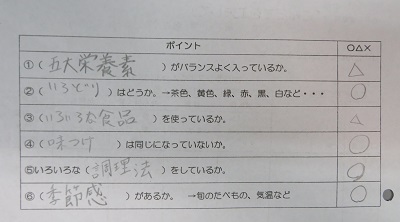 ポイント ○△×
①(五大栄養素)がバランスよく入っているか。 △
②(いろどり)はどうか。→茶色、黄色、緑、赤、黒、白など・・・ ○
③(いろいろな食品)を使っているか。 △
④(味つけ)は同じになっていないか。 ○
⑤いろいろな(調理法)をしているか。 ○
⑥(季節感)があるか。 →旬のたべもの、気温など ○